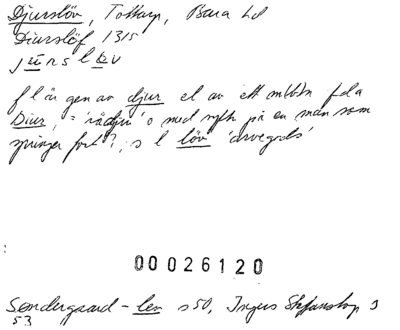 Djurslöv, Tottarp, Bara hd
Diurslöf 1315
jurslöv
f l är gen av djur el av ett mbtn fda
Diur, = 'rådjur' o med syft på en man som
springer fort?, s l löv 'arvegods'
00026120
Søndergaard - lev s 50, Ingers Skånstop s
53